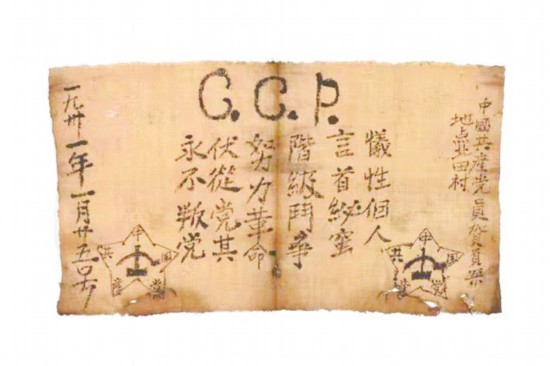 C.C.P.
中國共産党員賀頁朶
地点北田村
犧牲個人
言首秘蜜
階級鬥爭
努力革命
伏從党其
永不叛党
一九卅一年一月廿五号
中国共産党
中国共産党